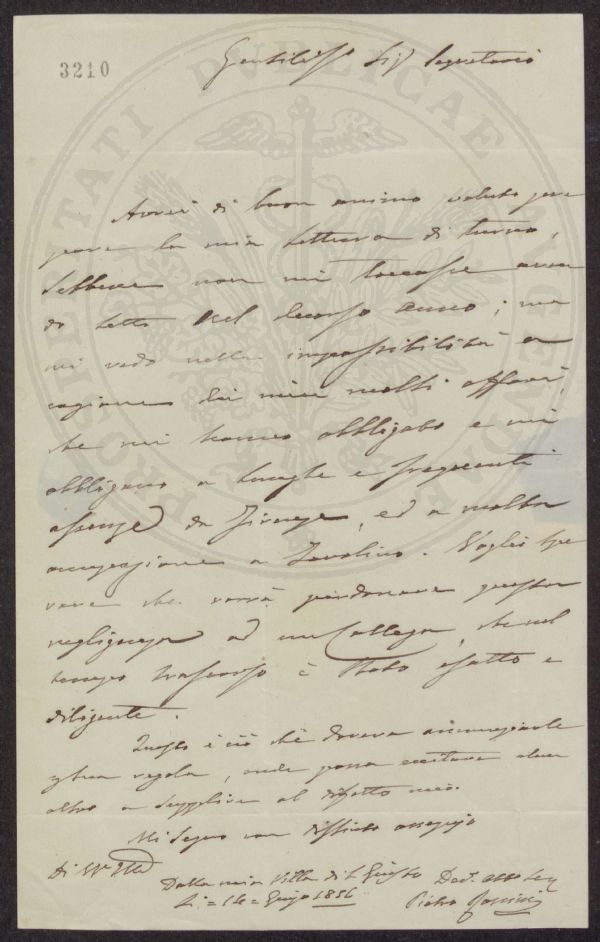 3210
Gentiliss.o Sig.r Segretario
PROSPERITATI PVBLICAE AVGENDAE
Avrei di buon animo voluto pre
parare la mia Lettura di turno,
sebbene non mi toccasse aven
do letto nel decorso anno; ma
mi vedo nella impossibilità a
cagione dei miei molti affari,
che mi hanno obbligato e mi
obbligano a lunghe e frequenti
assenze da Firenze, ed a molta
occupazione a Tavolino. Voglio spe
rare che vorrà perdonare questa
negligenza ad un Collega, che nel
tempo trascorso è stato esatto e
diligente.
Questo è ciò che doveva annunziarle
per sua regola, onde possa invitare alcun
altro a supplire al difetto mio.
Mi segno con distinto ossequio
Di VS. Ill.
Dalla mia Villa di S. Giusto Dev.
Li = 14 = Giug.o 1856 Pietro